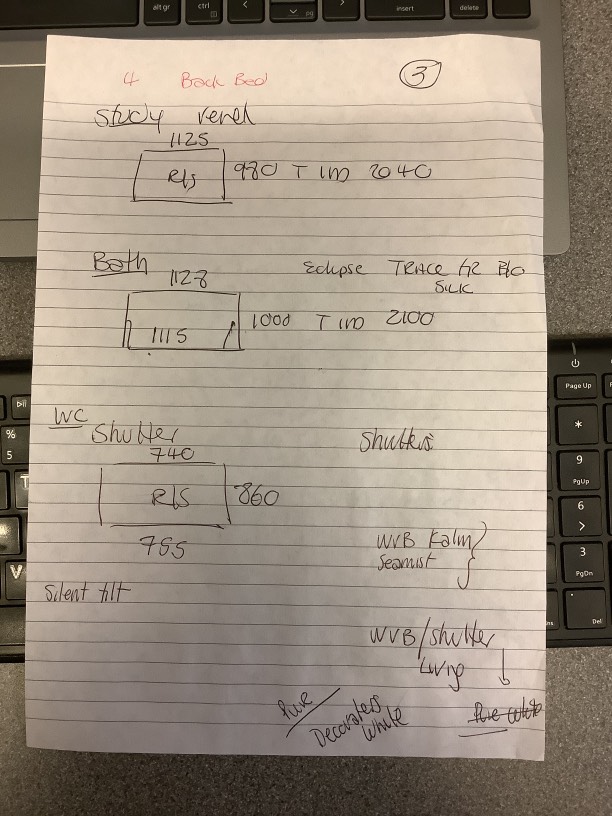 4 Back Bed
3
Study
1125
R/S 980 T 1100 2040
Bath
Eclipse TRACE B/O
SILK
1128
1115 1000 2100
WC
Shutter Shutters
740
R/S 860
755
WVB Kalm
Seamist
Silent tilt
WVB/Shutter
Living
Pure
Decorators
White
Pure white
alt gr
ctrl
insert
delete
%
5
T
V
Page Up
*
9
PgUp
6
>
3
PgDn
.
Del